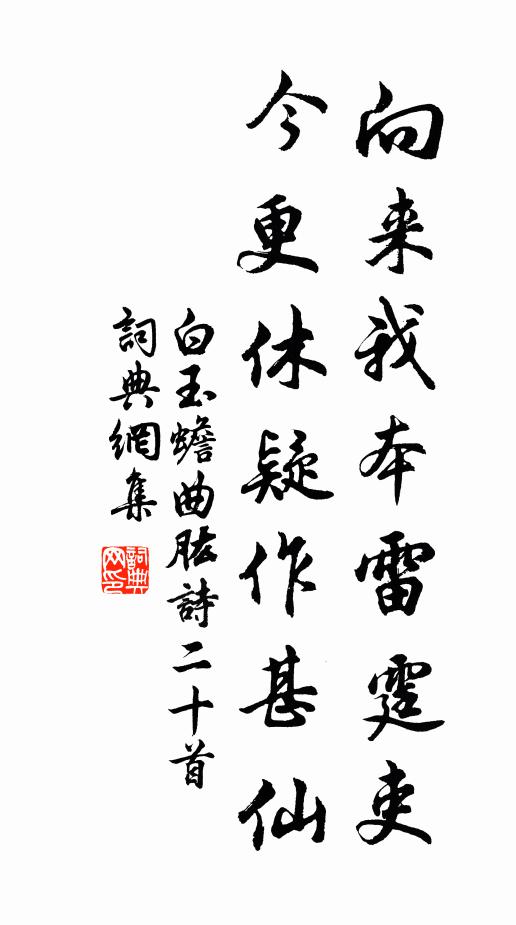 向来我本雷霆吏
今更休疑作甚仙
白玉蟾曲肱詩二十首
詞典網集
詞典網印